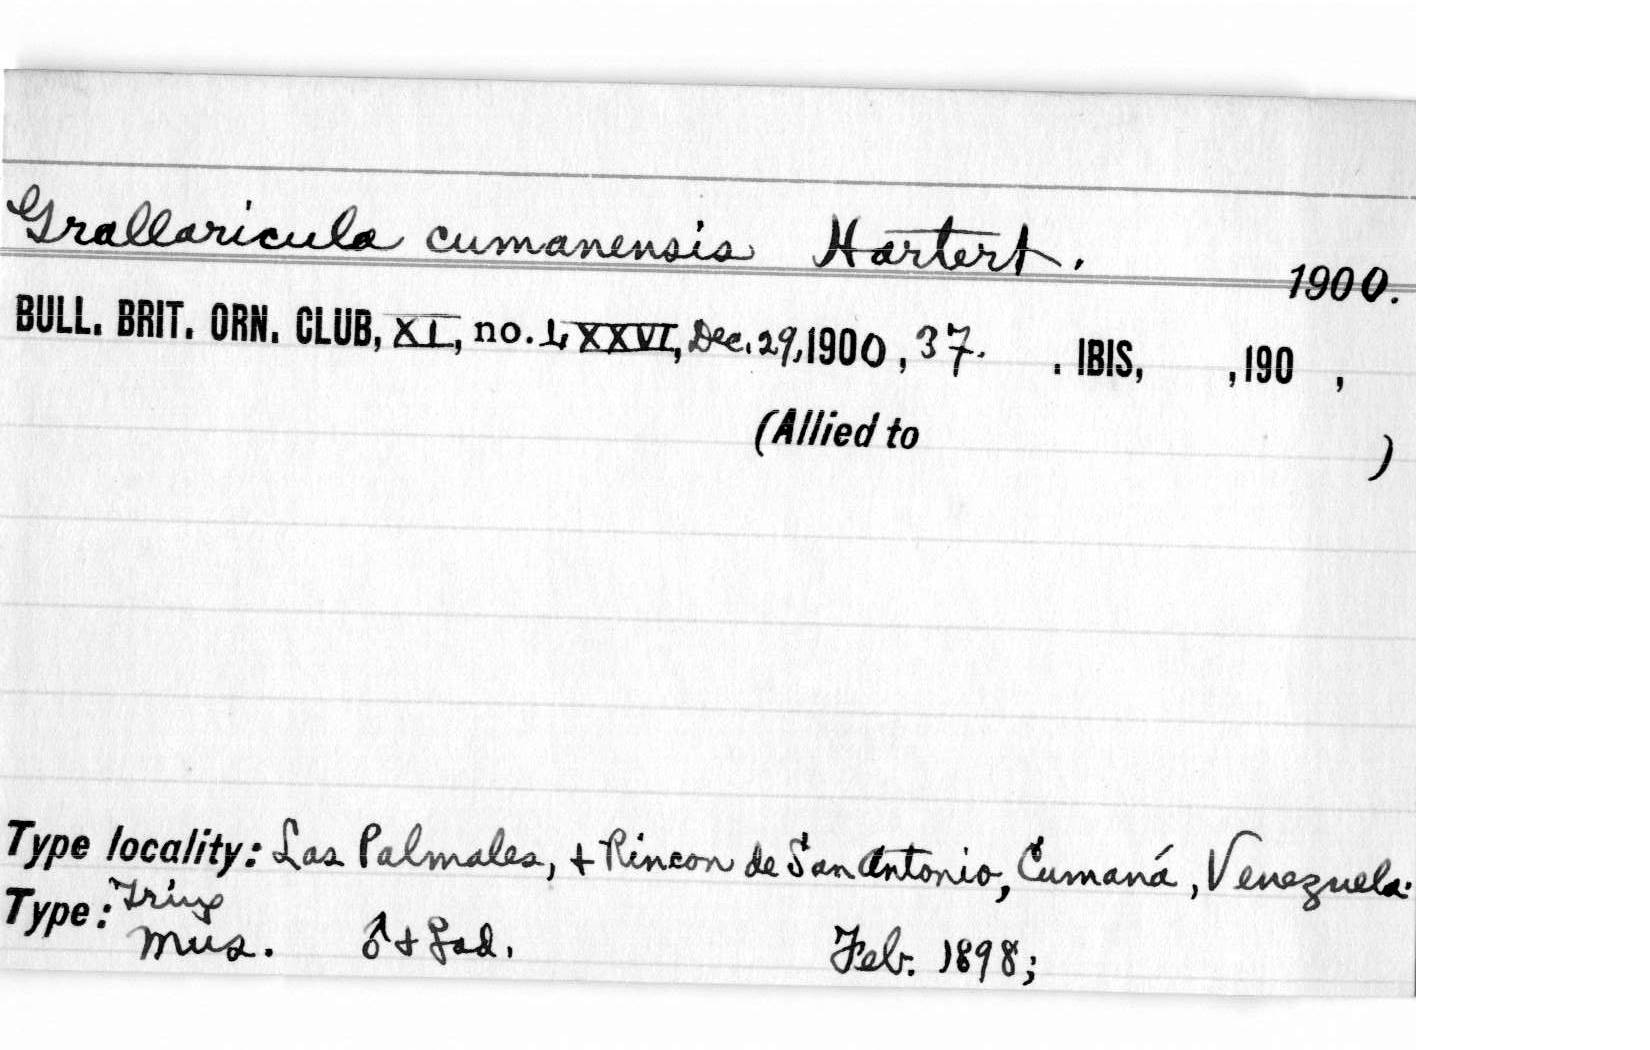 Grallaricula cumanensis Hartert. 1900.
BULL. BRIT. ORN. CLUB, XI, no. LXXVI, Dec. 29, 1900, 37. . IBIS, , 190 ,
(Allied to )
Type locality: Las Palmales, + Rincon de San Antonio, Cumaná, Venezuela.
Type: Tring
Mus. ♂ + ♀ ad. Feb. 1898;